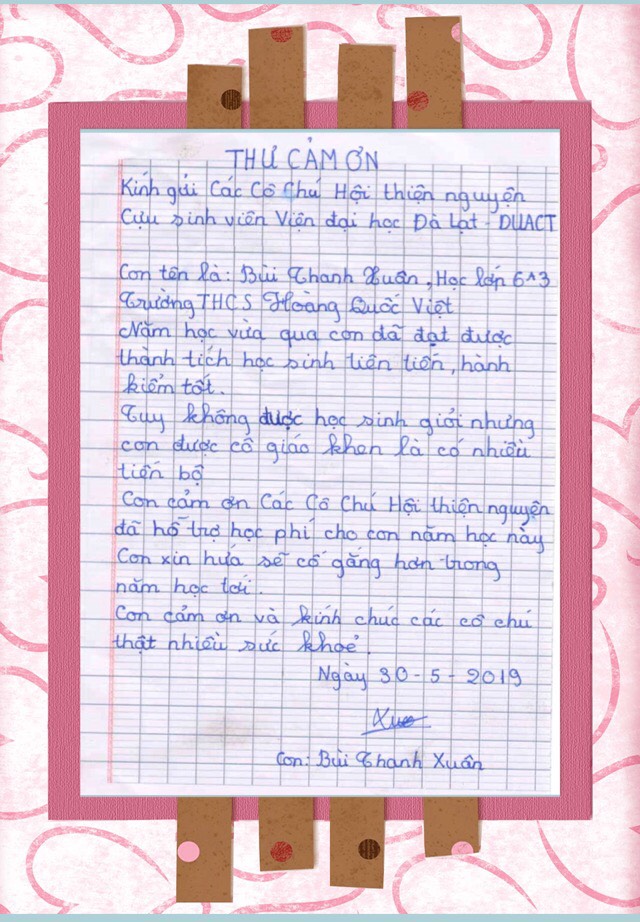 THƯ CẢM ƠN
Kính gửi Các Cô Chú Hội thiện nguyện
Cựu sinh viên Viện đại học Đà Lạt - DUACT
Con tên là: Bùi Thanh Xuân, Học lớp 6^3
Trường THCS Hoang Quốc Việt
Năm học vừa qua con đã đạt được
thành tích học sinh tiên tiến, hành
kiểm tốt.
Tuy không được học sinh giỏi nhưng
con được cô giáo khen là có nhiều
tiến bộ
Con cảm ơn Các Cô Chú Hội thiện nguyện
đã hỗ trợ học phí cho con năm học này
Con xin hứa sẽ cố gắng hơn trong
năm học tới.
Con cảm ơn và kính chúc các cô chú
thật nhiều sức khoẻ.
Ngày 30-5-2019
Xuân
Con: Bùi Thanh Xuân